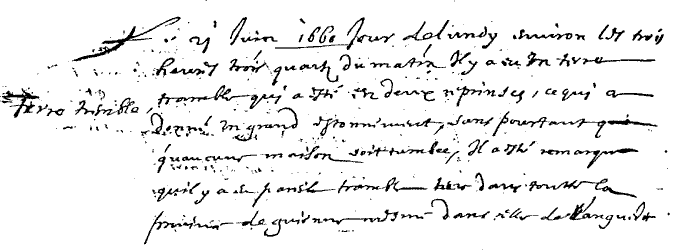 Le 21 Juin 1660 Jour de lundy environ les trois
heures trois quartz du matin Il y a eu un terre
terre trembla,
tramble qui a esté en deux reprinses, ce qui a
donné un grand estonnement, sans pourtant que
qu'aucune maison soit tumbée, Il a esté remarque
qu'il y a eu pareil tramble terre dans toutte la
province de guienne mesme dans celle de Languedoc